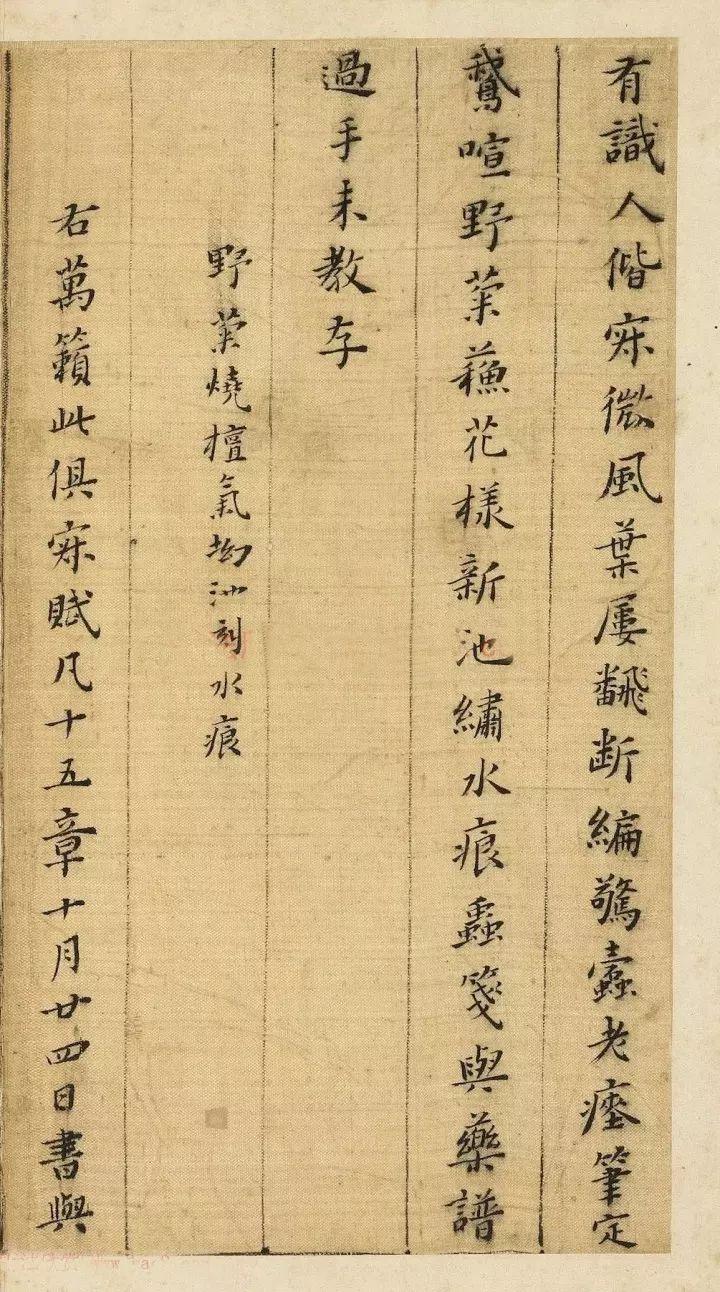 有識人偕寂微風葉屢飜斷編驚蠹老瘞筆定
鵝喧野菜蘓花樣新池繡水痕蟲箋與藥譜
過手未教存
野菜燒檀氣坳池刻水痕
右萬籟此俱寂賦凡十五章十月廿四日書與